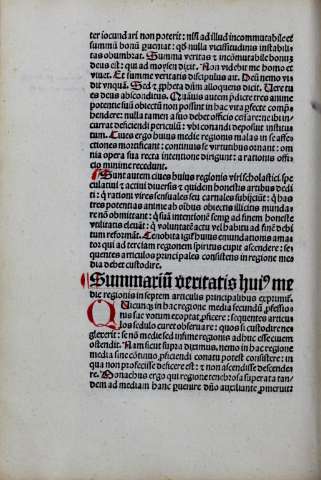 ter iocundari non poterit: nisi ad illud incommutabile et
summū bonū ꝑueniat: qđ nulla vicissitudinis instabili
tas obumbrat. Summa veritas ⁊ incōmutabile bonū
deus est: qui ad moysen dixit. Non videbit me homo et
viuet. Et summe veritatis discipulus ait. Deū nemo vi
dit vnquā. Sed ⁊ ꝓpheta dn̄m alloquens dicit. Vere tu
es deus absconditus. Quāuis autem p̄dicte tres anime
potentie suū obiectū non possint in hac vita ꝑfecte comp̄
hendere: nulla tamen a suo debet officio cessare: ne ibi in/
currat deficiendi periculū: vbi conandi deposuit institu
tum. Ciues ergo huius medie regionis malas in se affe
ctiones mortificant: continuis se virtutibus ornant: om
nia opera sua recta intentione dirigunt: a rationis offi
cio minime recedunt.
Sunt autem ciues huius regionis viri scholastici: spe
culatiui ⁊ actiui diuersis ⁊ quidem honestis artibus dedi
ti: q̄ ratiōn vires sensuales seu carnales subijciūt: q̄ has
tres potentias anime ab obiectis illicitis mundare
re nō obmittant: q̄ suā intentionē semꝑ ad finem honeste
vtilitatis eleuāt: q̄ voluntatē actu vel habitu ad finē debi
tum reformāt. Cenobita igr̄ huius emundationis amator
qui ad terciam regionem spiritus cupit ascendere: se
quentes articulos principales consistens in regione me
dia debet custodire.
Summariū veritatis huiꝰ me
die regionis in septem articulis principalibus exprimit̄.
Quicunqꝫ in hac regione media secundū ꝓfessio
nis suc votum exoptat ꝓficere: sequentes articu
los sedulo curet obseruare: quos si custodire ne
glexerit: se nō medie sed infime regionis adhuc esse ciuem
ostendit. Nam sicut supra diximus, nemo in hac regione
media sine cōtinuo ꝓficiendi conatu potest consistere: in
qua non ꝓfecisse defecisse est: ⁊ non ascendisse descende/
re. Monachus ergo qui regione tenebrosa superata tan/
dem ad mediam hanc ꝑuenire dn̄o auxiliante ꝓmeruit